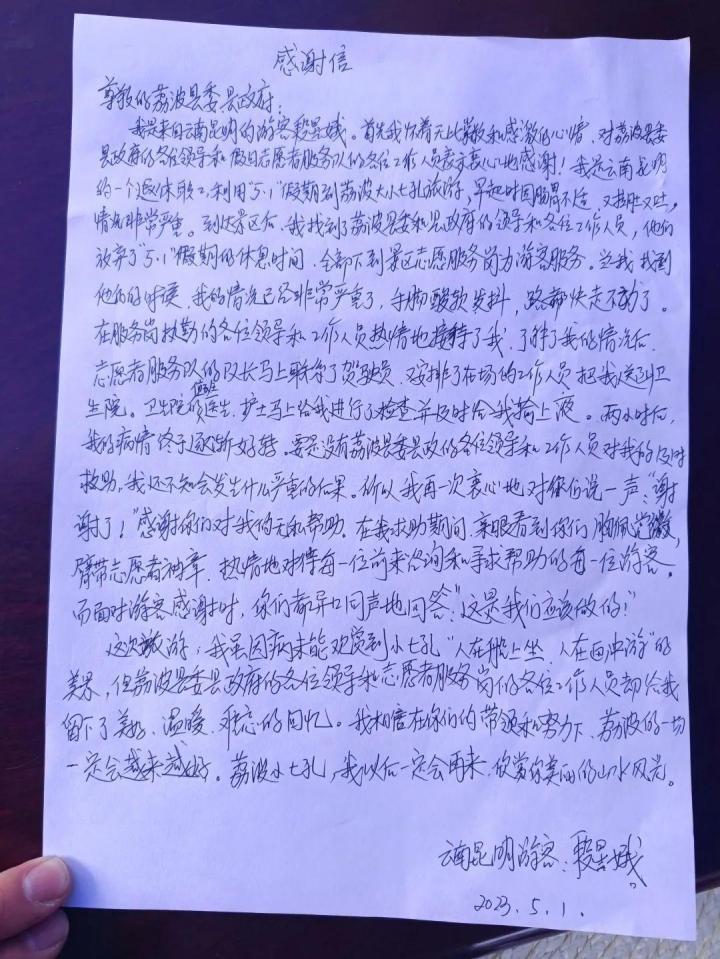 感谢信
尊敬的荔波县委县政府：
我是来自云南昆明的游客黎星娥。首先我怀着无比崇敬和感激的心情，对荔波县委
县政府的各位领导和假日志愿者服务队的各位工作人员表示衷心地感谢！我是云南昆明
的一个退休职工，利用“5.1”假期到荔波大小七孔旅游，早起时因肠胃不适，又拉肚又吐，
情况非常严重。到达景区后，我找到了荔波县委和县政府的领导和各位工作人员，他们
放弃了“5.1”假期的休息时间，全部下到景区志愿服务岗为游客服务。当我找到
他们的时候，我的情况已经非常严重了，手脚酸软发抖，路都快走不动了。
在服务岗执勤的各位领导和工作人员热情地接待了我，了解了我的情况后，
志愿者服务队的队长马上联系了驾驶员，又安排了在场的工作人员把我送到卫
生院。卫生院值班医生、护士马上给我进行了检查并及时给我输上液。两小时后，
我的病情终于逐渐好转，要是没有荔波县委县政的各位领导和工作人员对我的及时
救助，我还不知会发生什么严重的后果。所以我再一次衷心地对你们说一声：“谢
谢了！”感谢你们对我的无私帮助。在我求助期间，亲眼看到你们胸佩党徽，
臂带志愿者袖章，热情地对待每一位前来咨询和寻求帮助的每一位游客。
而面对游客感谢时，你们都异口同声地回答：“这是我们应该做的！”
这次旅游，我虽因病未能欢赏到小七孔“人在桃上坐，人在画中游”的
美景，但荔波县委县政府的各位领导和志愿者服务岗们各位工作人员却给我
留下了美好、温暖、难忘的回忆。我相信在你们的带领和努力下，荔波的一切
一定会越来越好。荔波小七孔，我以后一定会再来，欣赏你美丽的山水风光。
云南昆明游客：黎星娥
2023.5.1.